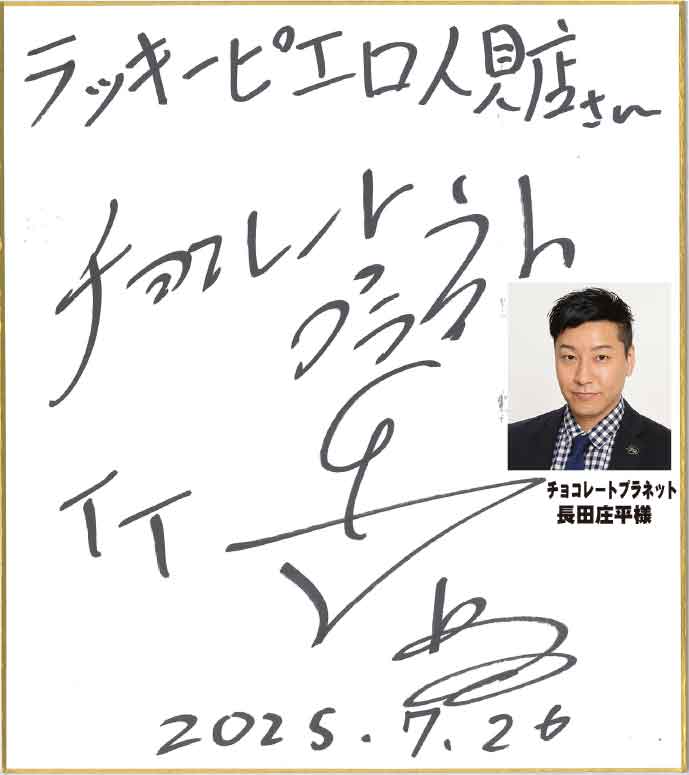 ラッキーピエロ人見店さん
チョコレート
プラネット
チョコレートプラネット
長田庄平様
2025.7.26